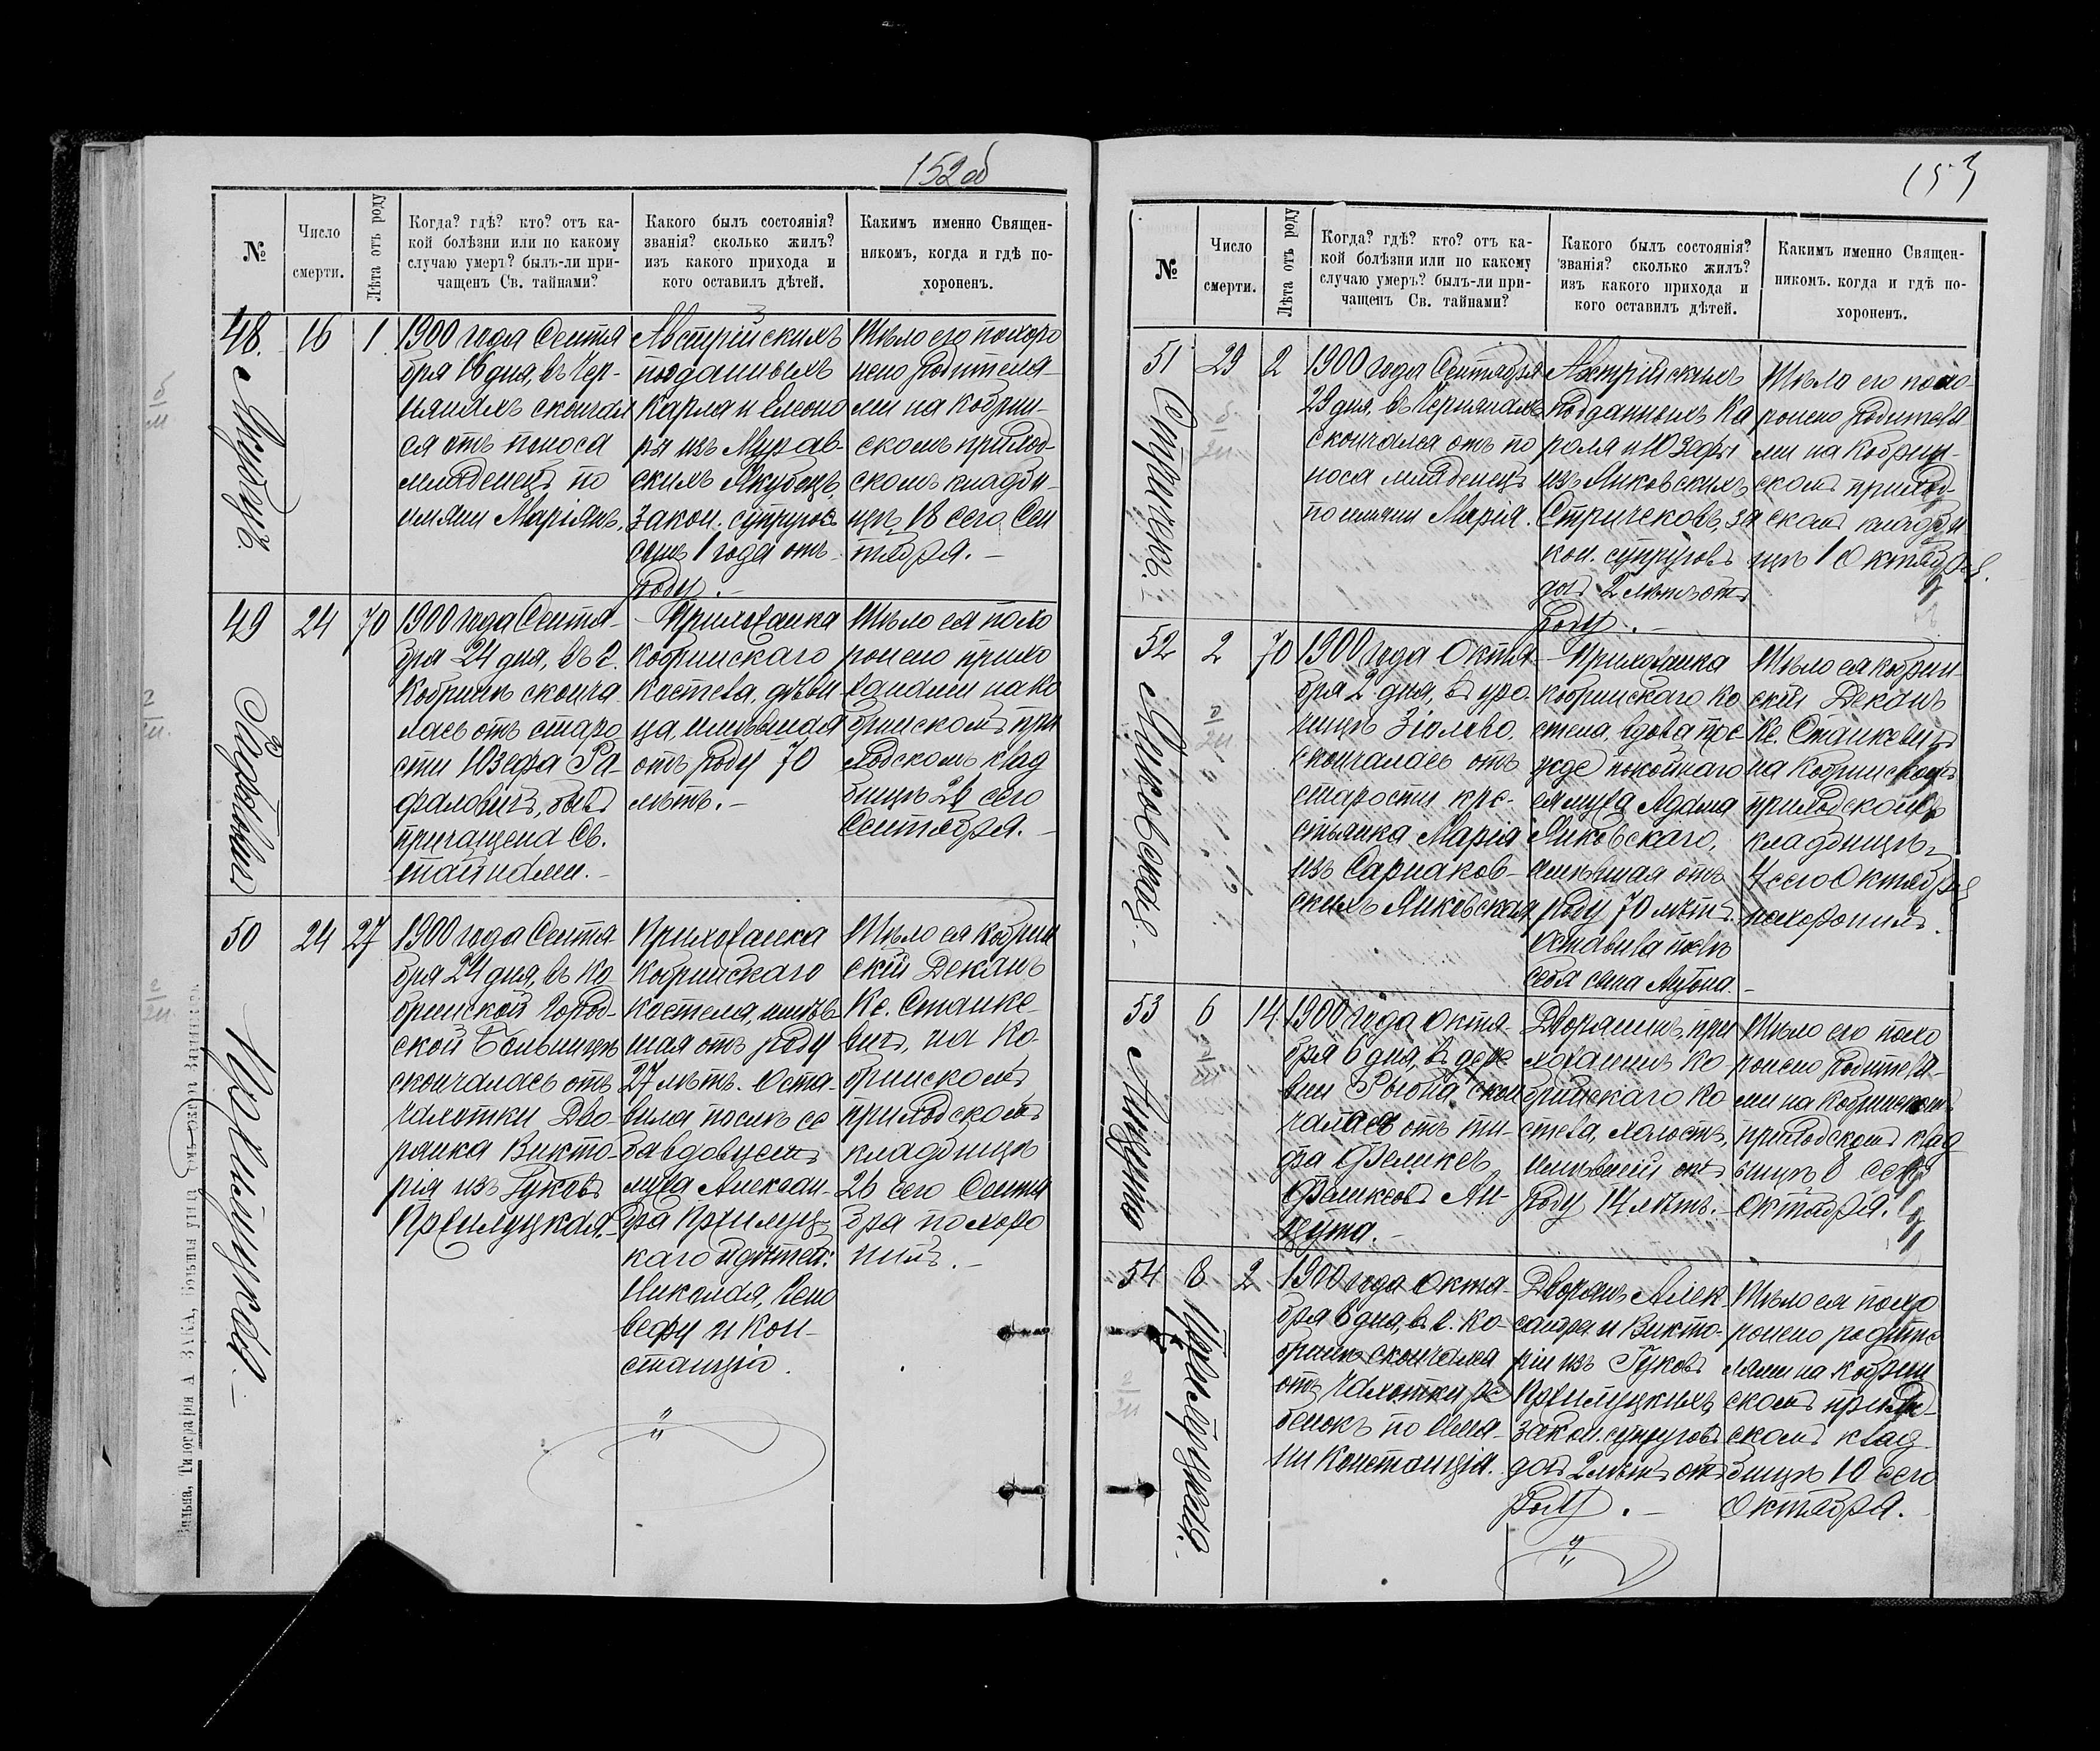 152 об
№
Число
смерти.
Лѣта отъ роду
Когда? гдѣ? кто? отъ ка-
кой болѣзни или по какому
случаю умеръ? былъ-ли при-
чащенъ Св. тайнами?
Какого былъ состоянія?
званія? сколько жилъ?
изъ какого прихода и
кого оставилъ дѣтей.
Какимъ именно Священ-
никомъ, когда и гдѣ по-
хороненъ.
48.
Якубецъ.
16
1
1900 года Сентя
бря 16 дня, въ Чер-
нянахъ скончал
ся отъ поноса
младенецъ по
имяни Маріянъ.
Австрійскихъ
подданныхъ
Карла и Элеоно
ры изъ Мурав-
скихъ Якубецъ,
закон. супруговъ
сынъ 1 года отъ
роду.—
Тѣло его похоро
нено родителя-
ми на Кобрин-
скомъ приход-
скомъ кладби-
щѣ 18 сего Сен
тября.—
49
Рафаловичъ
24
70
1900 года Сентя-
бря 24 дня, въ г.
Кобринѣ сконча
лась отъ старо
сти Юзефа Ра-
фаловичъ, бывъ
причащена Св.
тайнами.—
Прихожанка
Кобринскаго
костела, дѣви
ца, имѣвшая
отъ роду 70
лѣтъ.—
Тѣло ея похо
ронено прихо
жанами на Ко
бринскомъ при
ходскомъ клад
бищѣ 26 сего
Сентября.—
50
Пржилуцкая.—
24
27
1900 года Сентя-
бря 24 дня, въ Ко
бринской город-
ской больницѣ
скончалась отъ
чахотки Дво-
рянка Викто-
рія изъ Гуковъ
Пржилуцкая.—
Прихожанка
Кобринскаго
костела, имѣв
шая отъ роду
27 лѣтъ. Оста-
вила послѣ се
бя вдовцемъ
мужа Алексан-
дра Пржилуц-
каго и дѣтей:
Николая, Гено
вефу и Кон-
станцію.
Тѣло ея Кобрин
скій Деканъ
Кс. Станке-
вичъ, на Ко-
бринскомъ
приходскомъ
кладбищѣ
26 сего Сентя
бря похоро
нилъ.—
Вильна, Типографія А
153
№
Число
смерти.
Лѣта отъ роду
Когда? гдѣ? кто? отъ ка-
кой болѣзни или по какому
случаю умеръ? былъ-ли при-
чащенъ Св. тайнами?
Какого былъ состоянія?
званія? сколько жилъ?
изъ какого прихода и
кого оставилъ дѣтей.
Какимъ именно Священ-
никомъ. когда и гдѣ по-
хороненъ.
51
Стричекъ.
29
2
1900 года Сентября
29 дня, въ Чернянахъ
скончался отъ по
носа младенецъ
по имяни Марія.
Австрійскихъ
подданныхъ Ка
роля и Юзефы
изъ Янковскихъ
Стричековъ, за
кон. супруговъ
дочь 2 лѣтъ отъ
роду.—
Тѣло его похо-
ронено родителя
ми на Кобрин-
скомъ приход-
скомъ кладби
щѣ 1 Октября.
52
Янковская.—
2
70
1900 года Октя-
бря 2 дня, въ уро-
чищѣ Зіолово,
скончалась отъ
старости кре-
стьянка Марія
изъ Сарнаков-
скихъ Янковская
Прихожанка
Кобринскаго ко
стела, вдова пре
жде покойнаго
ея мужа Адама
Янковскаго,
имѣвшая отъ
роду 70 лѣтъ.
Оставила послѣ
себя сына Антона.—
Тѣло ея Кобрин-
скій Деканъ
Кс. Станкевичъ
на Кобринскомъ
приходскомъ
кладбищѣ
4 сего Октября
похоронилъ.
53
Анцуто
6
14
1900 года Октя-
бря 6 дня, въ дере
вни Рыбна скон
чался отъ ти-
фа Феликсъ
Феликсовъ Ан-
цута.—
Дворянинъ, при
хожанинъ Ко
бринскаго ко
стела, холостъ,
имѣвшій отъ
роду 14 лѣтъ.—
Тѣло его похо
ронено родителя-
ми на Кобринскомъ
приходскомъ клад
бищѣ 8 сего
Октября.
54
Пржилуцкая.
8
2
1900 года Октя-
бря 8 дня, въ г. Ко-
бринѣ скончался
отъ чахотки ре
бенокъ по имя-
ни Констанція.
Дворянъ Алек-
сандра и Викто-
ріи изъ Гуковъ
Пржилуцкихъ,
закон. супруговъ
дочь 2 лѣтъ отъ
роду.—
Тѣло ея похо
ронено родите
лями на Кобрин
скомъ приход-
скомъ клад
бищѣ 10 сего
Октября.